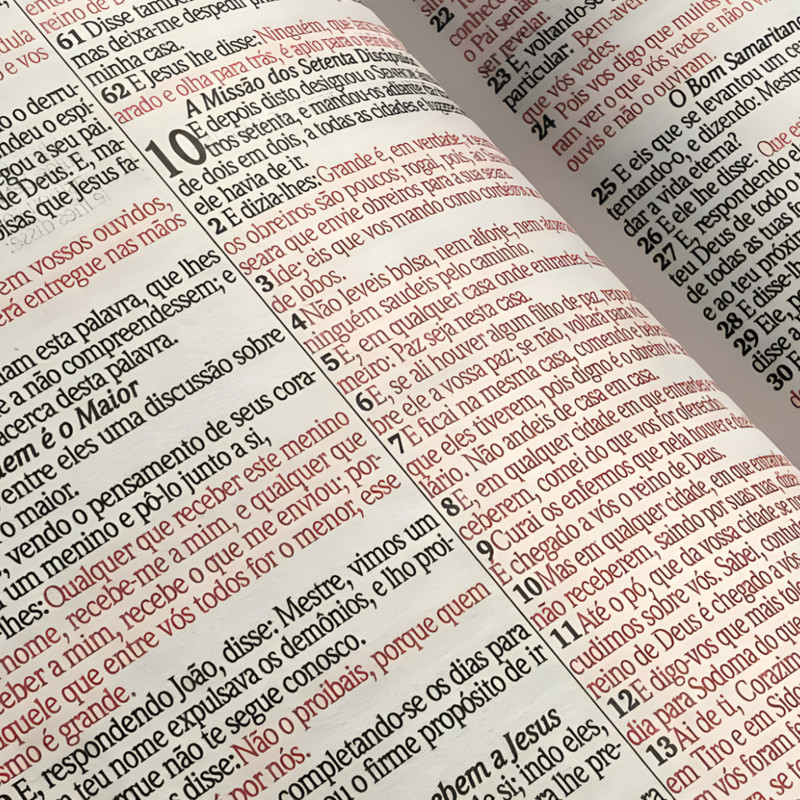 dula
e vos
o derru-
ndeu o espí-
gou a seu pai.
de Deus. E, ma-
oisas que Jesus fa-
em vossos ouvidos,
erá entregue nas mãos
iam esta palavra, que lhes
e a não compreendessem; e
acerca desta palavra.
em é o Maior
entre eles uma discussão sobre
o maior.
, vendo o pensamento de seus cora-
um menino e pô-lo junto a si,
-lhes: Qualquer que receber este menino
nome, recebe-me a mim, e qualquer que
ceber a mim, recebe o que me enviou; por-
aquele que entre vós todos for o menor, esse
smo é grande.
E, respondendo João, disse: Mestre, vimos um
teu nome expulsava os demônios, e lho proi-
rque não te segue conosco.
disse: Não o proibais, porque quem
é por nós.
completando-se os dias para
ou o firme propósito de ir
bem a Jesus
de si; indo eles,
ra lhe pre-
reino de
61 Disse também
mas deixa-me despedir
minha casa.
62 E Jesus lhe disse: Ninguém, que
arado e olha para trás, é apto para o reino
A Missão dos Setenta Discípulos
10 E depois disto designou o Senhor
tros setenta, e mandou-os adiante
de dois em dois, a todas as cidades e lugares
ele havia de ir.
2 E dizia-lhes: Grande é, em verdade, a
os obreiros são poucos; rogai, pois, ao
seara que envie obreiros para a sua seara.
3 Ide; eis que vos mando como cordeiros
de lobos.
4 Não leveis bolsa, nem alforje, nem
ninguém saudeis pelo caminho.
5 E, em qualquer casa onde entrardes,
meiro: Paz seja nesta casa.
6 E, se ali houver algum filho de paz,
pre ele a vossa paz; se não, voltará para
7 E ficai na mesma casa, comendo e
que eles tiverem, pois digno é o obreiro
lário. Não andeis de casa em casa.
8 E, em qualquer cidade em que entrardes
ceberem, comei do que vos for oferecido.
9 Curai os enfermos que nela houver e
É chegado a vós o reino de Deus.
10 Mas em qualquer cidade, em que
não receberem, saindo por suas ruas,
11 Até o pó, que da vossa cidade se
cudimos sobre vós. Sabei, contudo,
reino de Deus é chegado a vós
12 E digo-vos que mais
dia para Sodoma do que
13 Ai de ti, Corazim
em Tiro e em Sido
vós foram
22
conhece
o Pai senão
ser revelar.
23 E, voltando-se
particular: Bem-aven
que vós vedes.
24 Pois vos digo que muitos
ram ver o que vós vedes e não o
ouvis e não o ouviram.
O Bom Samaritano
25 E eis que se levantou um
tentando-o, e dizendo: Mestre
dar a vida eterna?
26 E ele lhe disse: Que
27 E, respondendo
teu Deus de todo o
de todas as tuas
e ao teu próximo
28 E disse-lh
29 Ele,
disse a
30 E